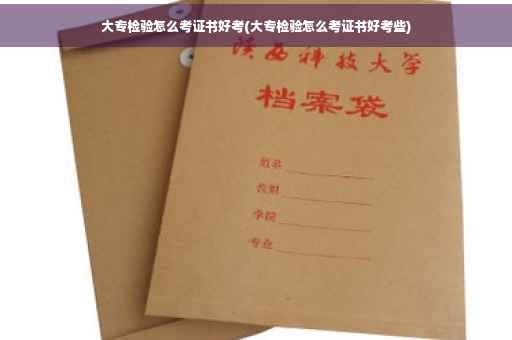 大专检验怎么考证书好考(大专检验怎么考证书好考些)
陕西科技大学
档案袋
姓名
性别
学院
专业